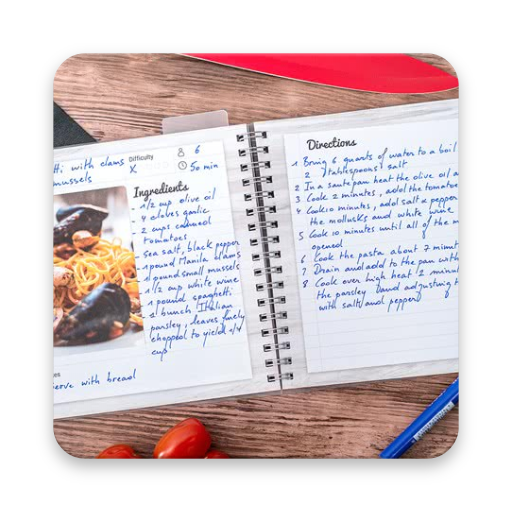 tti with clams
mussels
Difficulty
X
6
50 min
Ingredients
- 1/2 cup olive oil
- 4 cloves garlic
- 2 cups canned
tomatoes
sea salt, black pepper
1 pound Manila clams
1 pound small mussels
1/2 cup white wine
1 pound spaghetti
1 bunch Italian
parsley, leaves finely
chopped to yield 1/4
cup
serve with bread
Directions
1 Bring 6 quarts of water to a boil
2 tablespoons salt
2 In a saute pan heat the olive oil a
3 Cook 2 minutes, add the tomatoe
4 Cook 10 minutes, add salt & pepper
the mollusks and white wine
5 Cook 10 minutes until all of the m
opened
6 Cook the pasta about 7 minut
7 Drain and add to the pan with
8 Cook over high heat 2 minut
the parsley and adjusting t
with salt and pepper